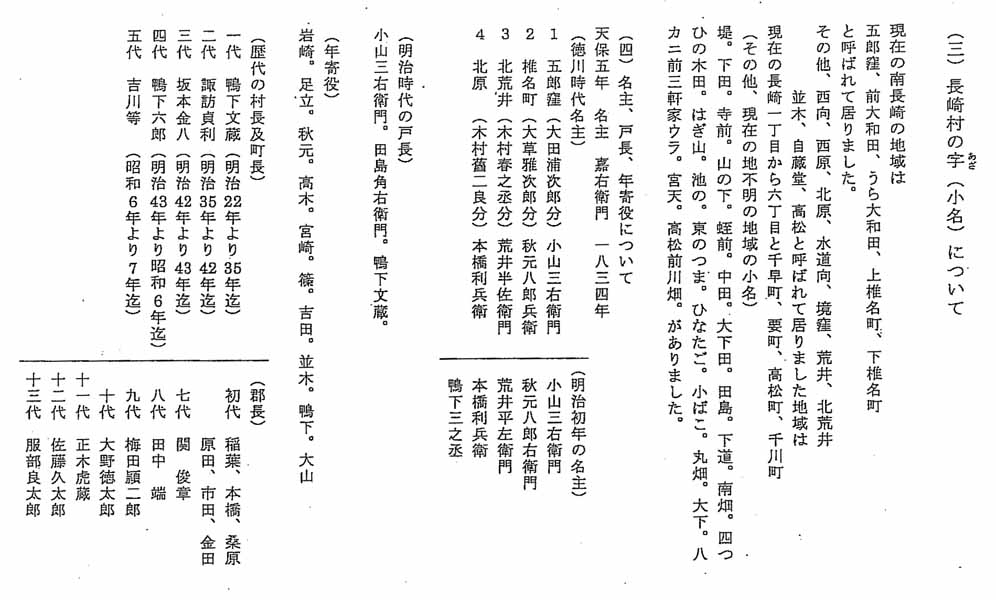 (三) 長崎村の字(小名)について
あざ
現在の南長崎の地域は
五郎窪、前大和田、うら大和田、上椎名町、下椎名町
と呼ばれて居りました。
その他、西向、西原、北原、水道向、境窪、荒井、北荒井
並木、自蔵堂、高松と呼ばれて居りました地域は
現在の長崎一丁目から六丁目と千早町、要町、高松町、千川町
(その他、現在の地不明の地域の小名)
堤。下田。寺前。山の下。蛭前。中田。大下田。田島。下道。南畑。四つ
ひの木田。はぎ山。池の。東のつま。ひなたご。小ばこ。丸畑。大下。八
カニ前三軒家ウラ。宮天。高松前川畑。がありました。
(四) 名主、戸長、年寄役について
天保五年 名主 嘉右衛門 一八三四年
(徳川時代名主)
1 五郎窪(大田浦次郎分)小山三右衛門
2 椎名町(大草雅次郎分)秋元八郎兵衛
3 北荒井(木村春之丞分)荒井半佐衛門
4 北原 (木村舊二良分)本橋利兵衛
(明治初年の名主)
小山三右衛門
秋元八郎右衛門
荒井平左衛門
本橋利兵衛
鴨下三之丞
(明治時代の戸長)
小山三右衛門。田島角右衛門。鴨下文蔵。
(年寄役)
岩崎。足立。秋元。高木。宮崎。篠。吉田。並木。鴨下。大山
(歴代の村長及町長)
一代 鴨下文蔵(明治22年より35年迄)
二代 諏訪貞利(明治35年より42年迄)
三代 坂本金八(明治42年より43年迄)
四代 鴨下六郎(明治43年より昭和6年迄)
五代 吉川等 (昭和6年より7年迄)
(郡長)
初代 稲葉、本橋、桑原
原田、市田、金田
七代 関 俊章
八代 田中 端
九代 梅田顕二郎
十代 大野徳太郎
十一代 正木虎蔵
十二代 佐藤久太郎
十三代 服部良太郎